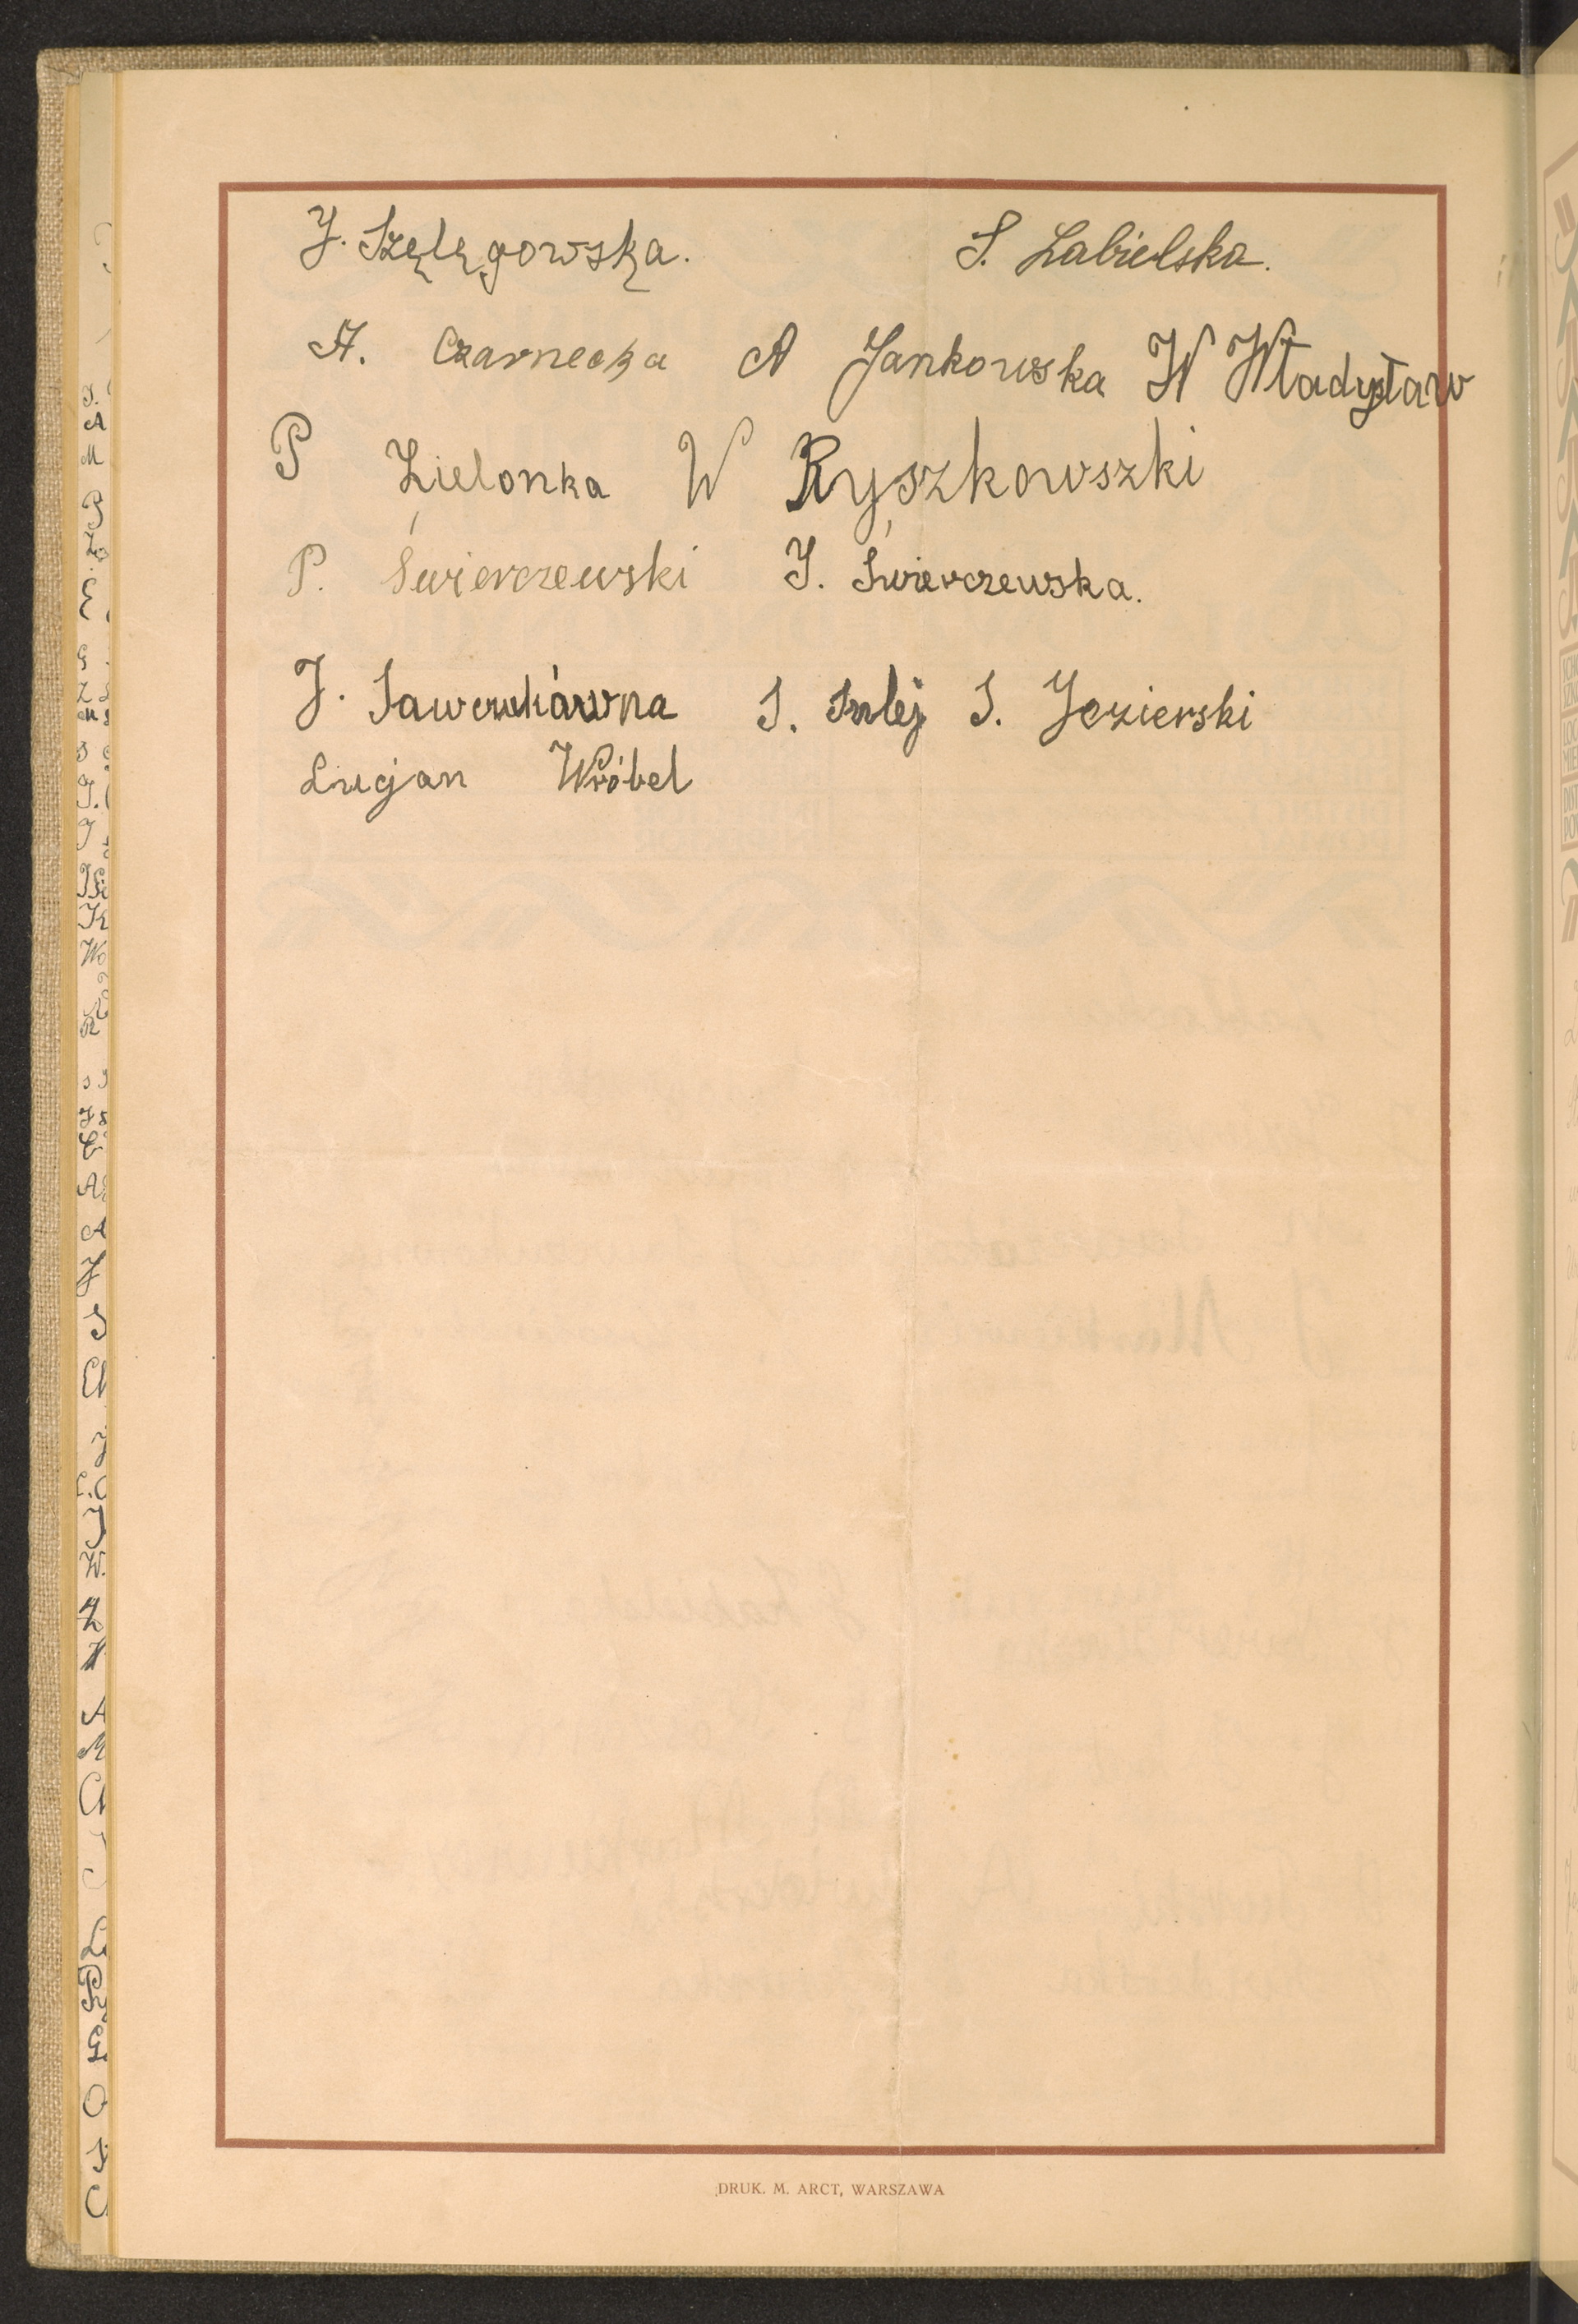 J. Szęlęgowska. S. Łabielska.
A. Czarnecka A Jankowska W Władysław
P Zielonka W Ryszkowszki
P. Świerczewski J. Świerczewska.
J. S. Jezierski
Lucjan Wróbel
DRUK. M. ARCT, WARSZAWA